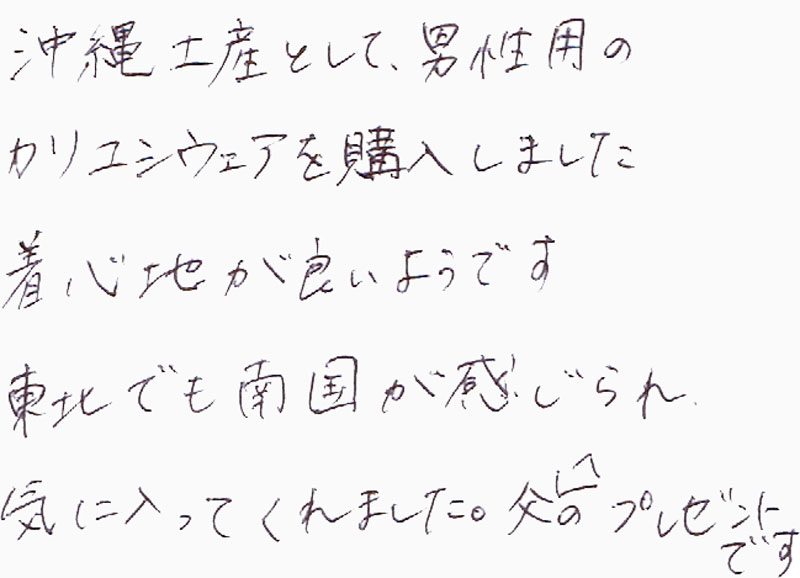 沖縄土産として、男性用の
カリユシウェアを購入しました
着心地が良いようです
東北でも南国が感じられ、
気に入ってくれました。父へのプレゼント
です